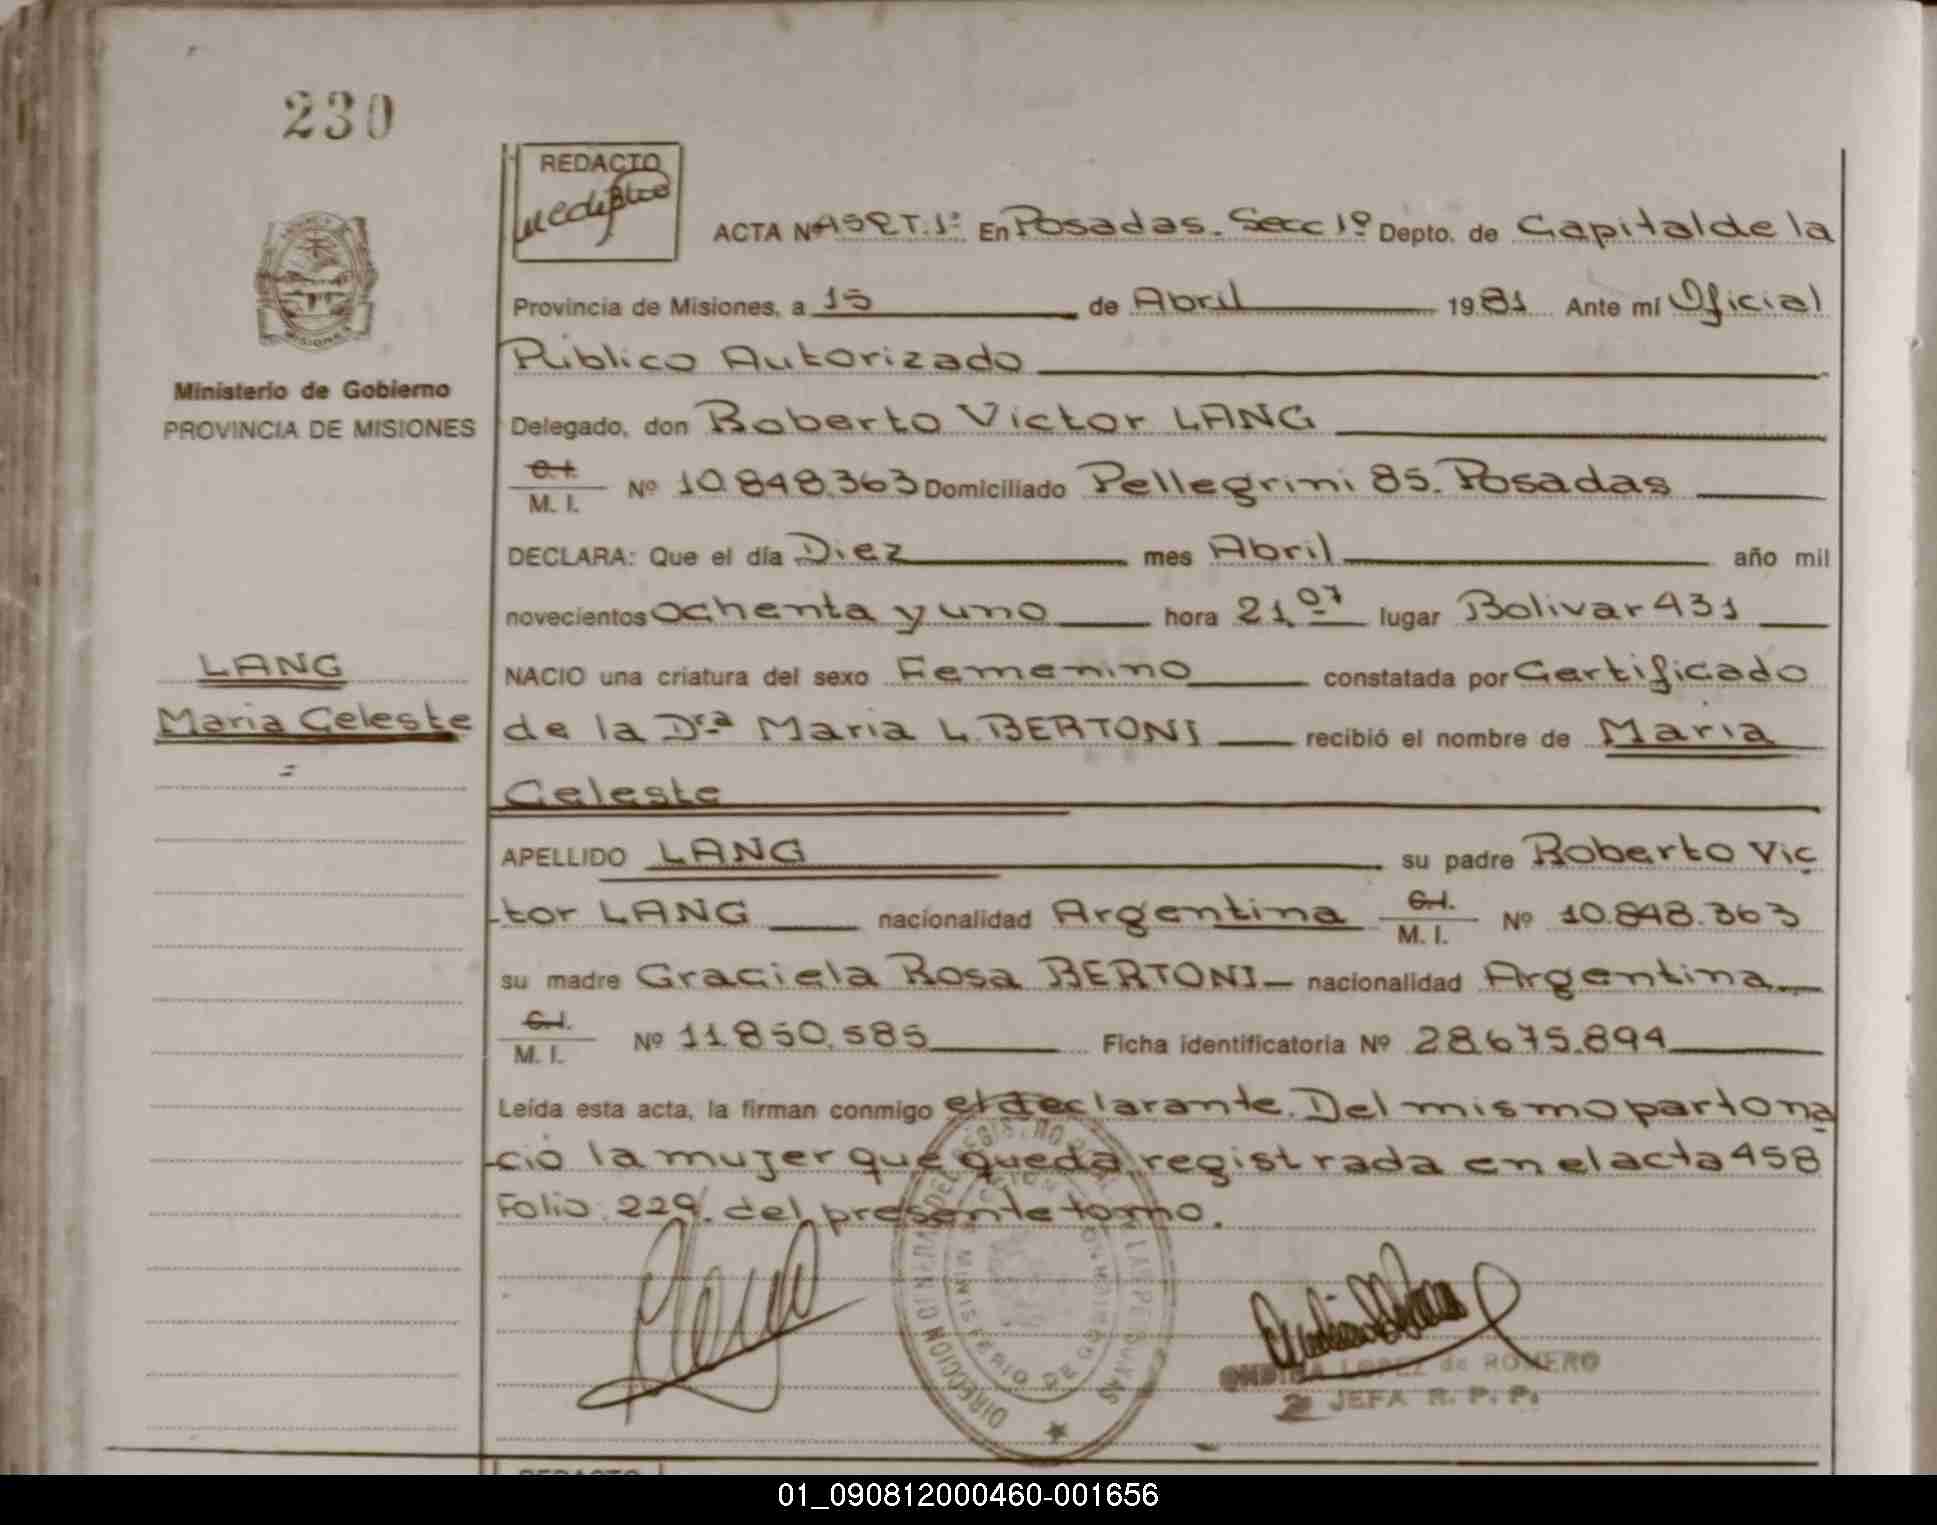 230
REDACTO
ACTA Nº 459 T. 1º En Posadas. Secc 1º Depto. de Capital de la
Provincia de Misiones, a 15 de Abril 1981 Ante mí Oficial
Público Autorizado
Ministerio de Gobierno
PROVINCIA DE MISIONES
Delegado, don Roberto Victor LANG
C.I.
M. I. Nº 10.848.363 Domiciliado Pellegrini 85. Posadas
DECLARA: Que el día Diez mes Abril año mil
novecientos ochenta y uno hora 21,07 lugar Bolivar 431
LANG
Maria Celeste
NACIO una criatura del sexo Femenino constatada por Certificado
de la Dra Maria L. BERTONI recibió el nombre de Maria
Celeste
APELLIDO LANG su padre Roberto Vic
-tor LANG nacionalidad Argentina C.I. M. I. Nº 10.848.363
su madre Graciela Rosa BERTONI nacionalidad Argentina
C.I.
M. I. Nº 11.850.585 Ficha identificatoria Nº 28.675.894
Leída esta acta, la firman conmigo el declarante. Del mismo parto na
-ció la mujer que queda registrada en el acta 458
Folio: 229. del presente tomo.
DIRECCION GENERAL DEL REGISTRO DE LAS PERSONAS
MINISTERIO DE GOBIERNO
LOPEZ de ROMERO
JEFA R. P. P.
REDACTO
01_090812000460-001656